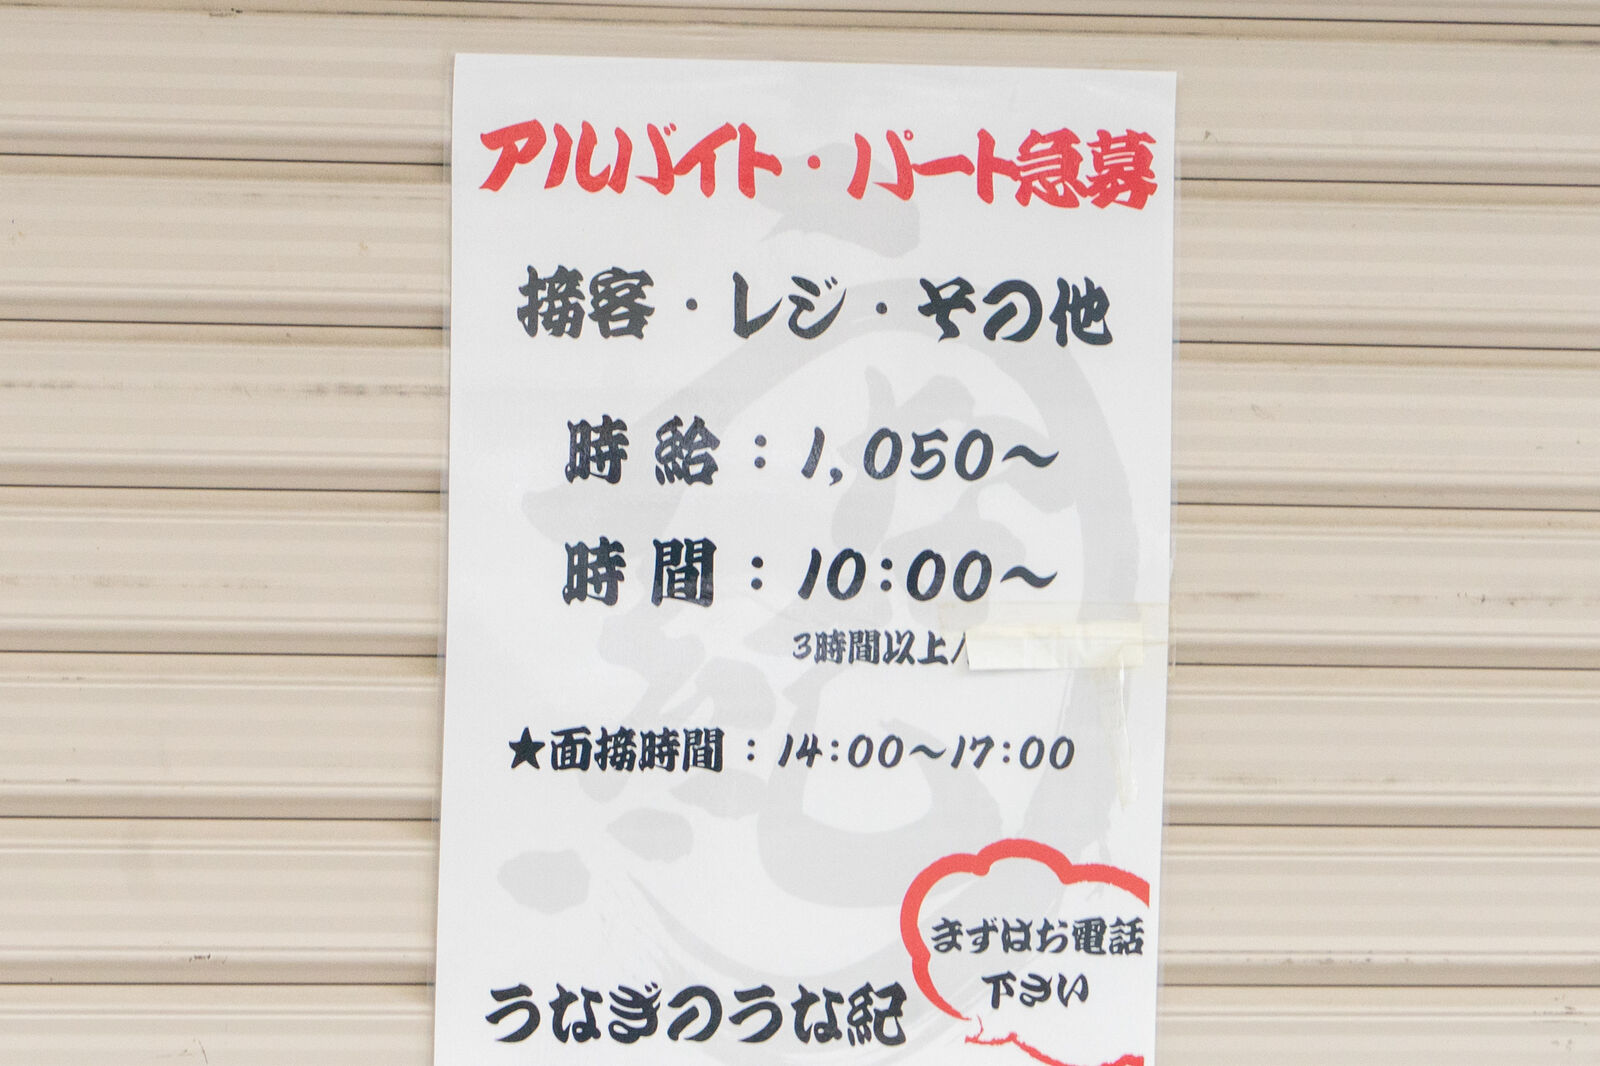 アルバイト・パート急募
接客・レジ・その他
時給：1,050～
時間：10:00～
3時間以上/
★面接時間：14:00～17:00
まずはお電話
下さい
うなぎのうな紀